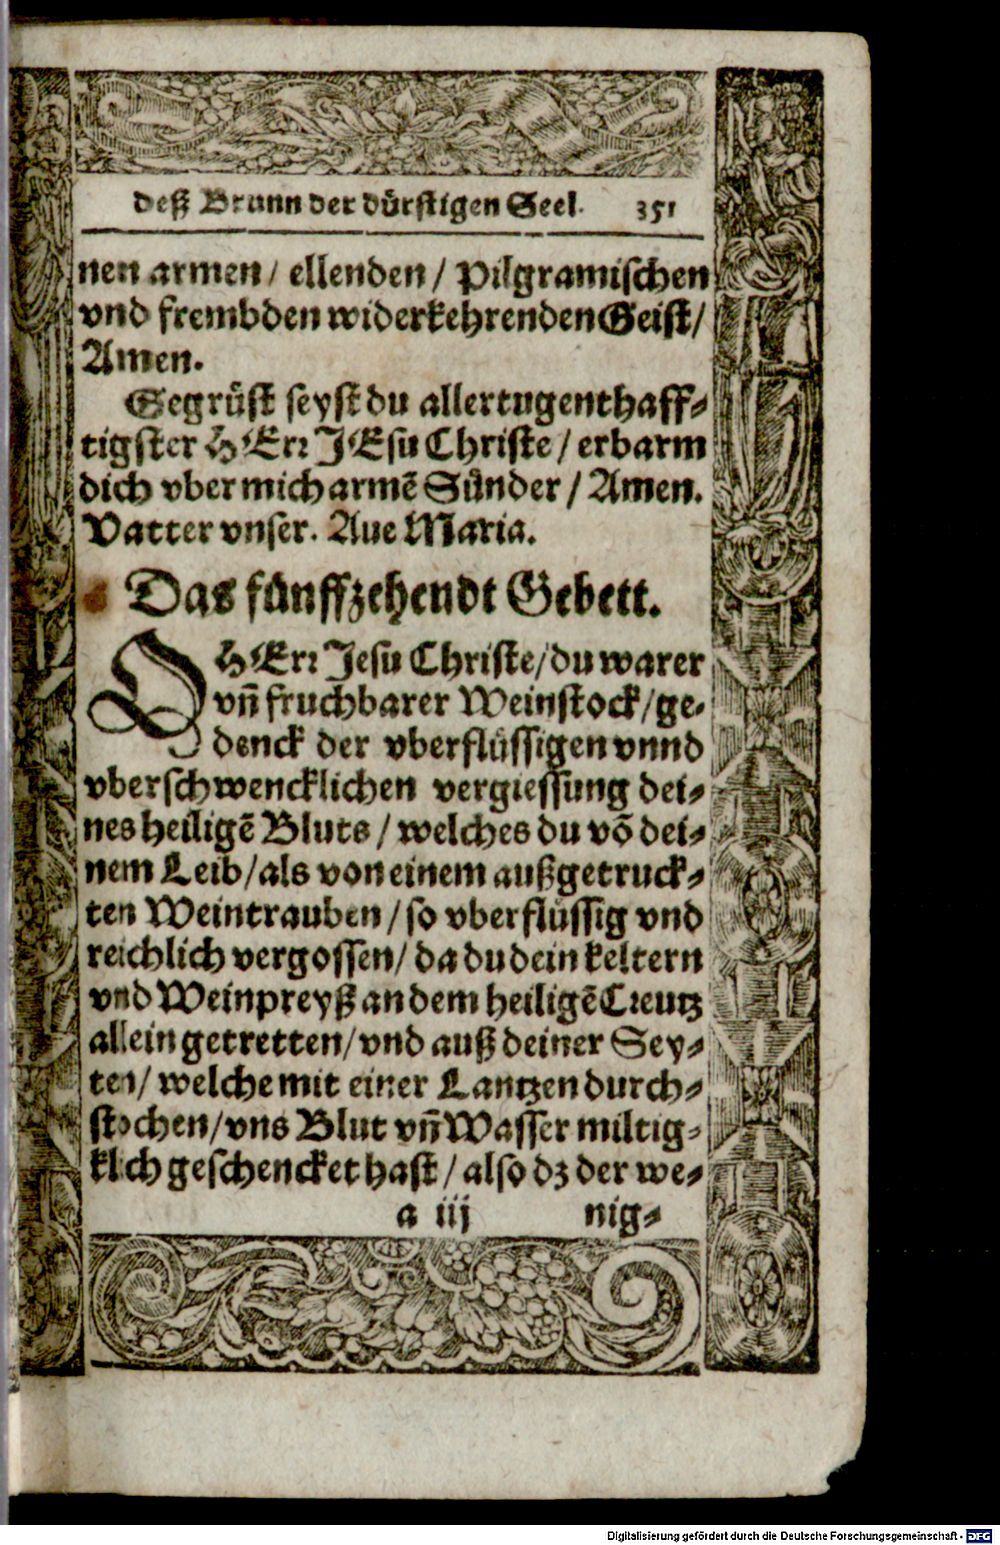 deß Brunn der dürstigen Seel. 351
nen armen / ellenden / Pilgramischen
vnd frembden widerkehrenden Geist /
Amen.
Gegrüst seyst du allertugenthaff⸗
tigster HErr JEsu Christe / erbarm
dich vber mich armẽ Sünder / Amen.
Vatter vnser. Aue Maria.
Das fünffzehendt Gebett.
O HErr Jesu Christe / du warer
vñ fruchbarer Weinstock / ge⸗
denck der vberflüssigen vnnd
vberschwencklichen vergiessung dei⸗
nes heiligẽ Bluts / welches du võ dei⸗
nem Leib / als von einem außgetruck⸗
ten Weintrauben / so vberflüssig vnd
reichlich vergossen / da du dein keltern
vnd Weinpreyß an dem heiligẽ Creutz
allein getretten / vnd auß deiner Sey⸗
ten / welche mit einer Lantzen durch⸗
stochen / vns Blut vñ Wasser miltig⸗
klich geschencket hast / also dz der we⸗
a iij nig⸗
Digitalisierung gefördert durch die Deutsche Forschungsgemeinschaft - DFG